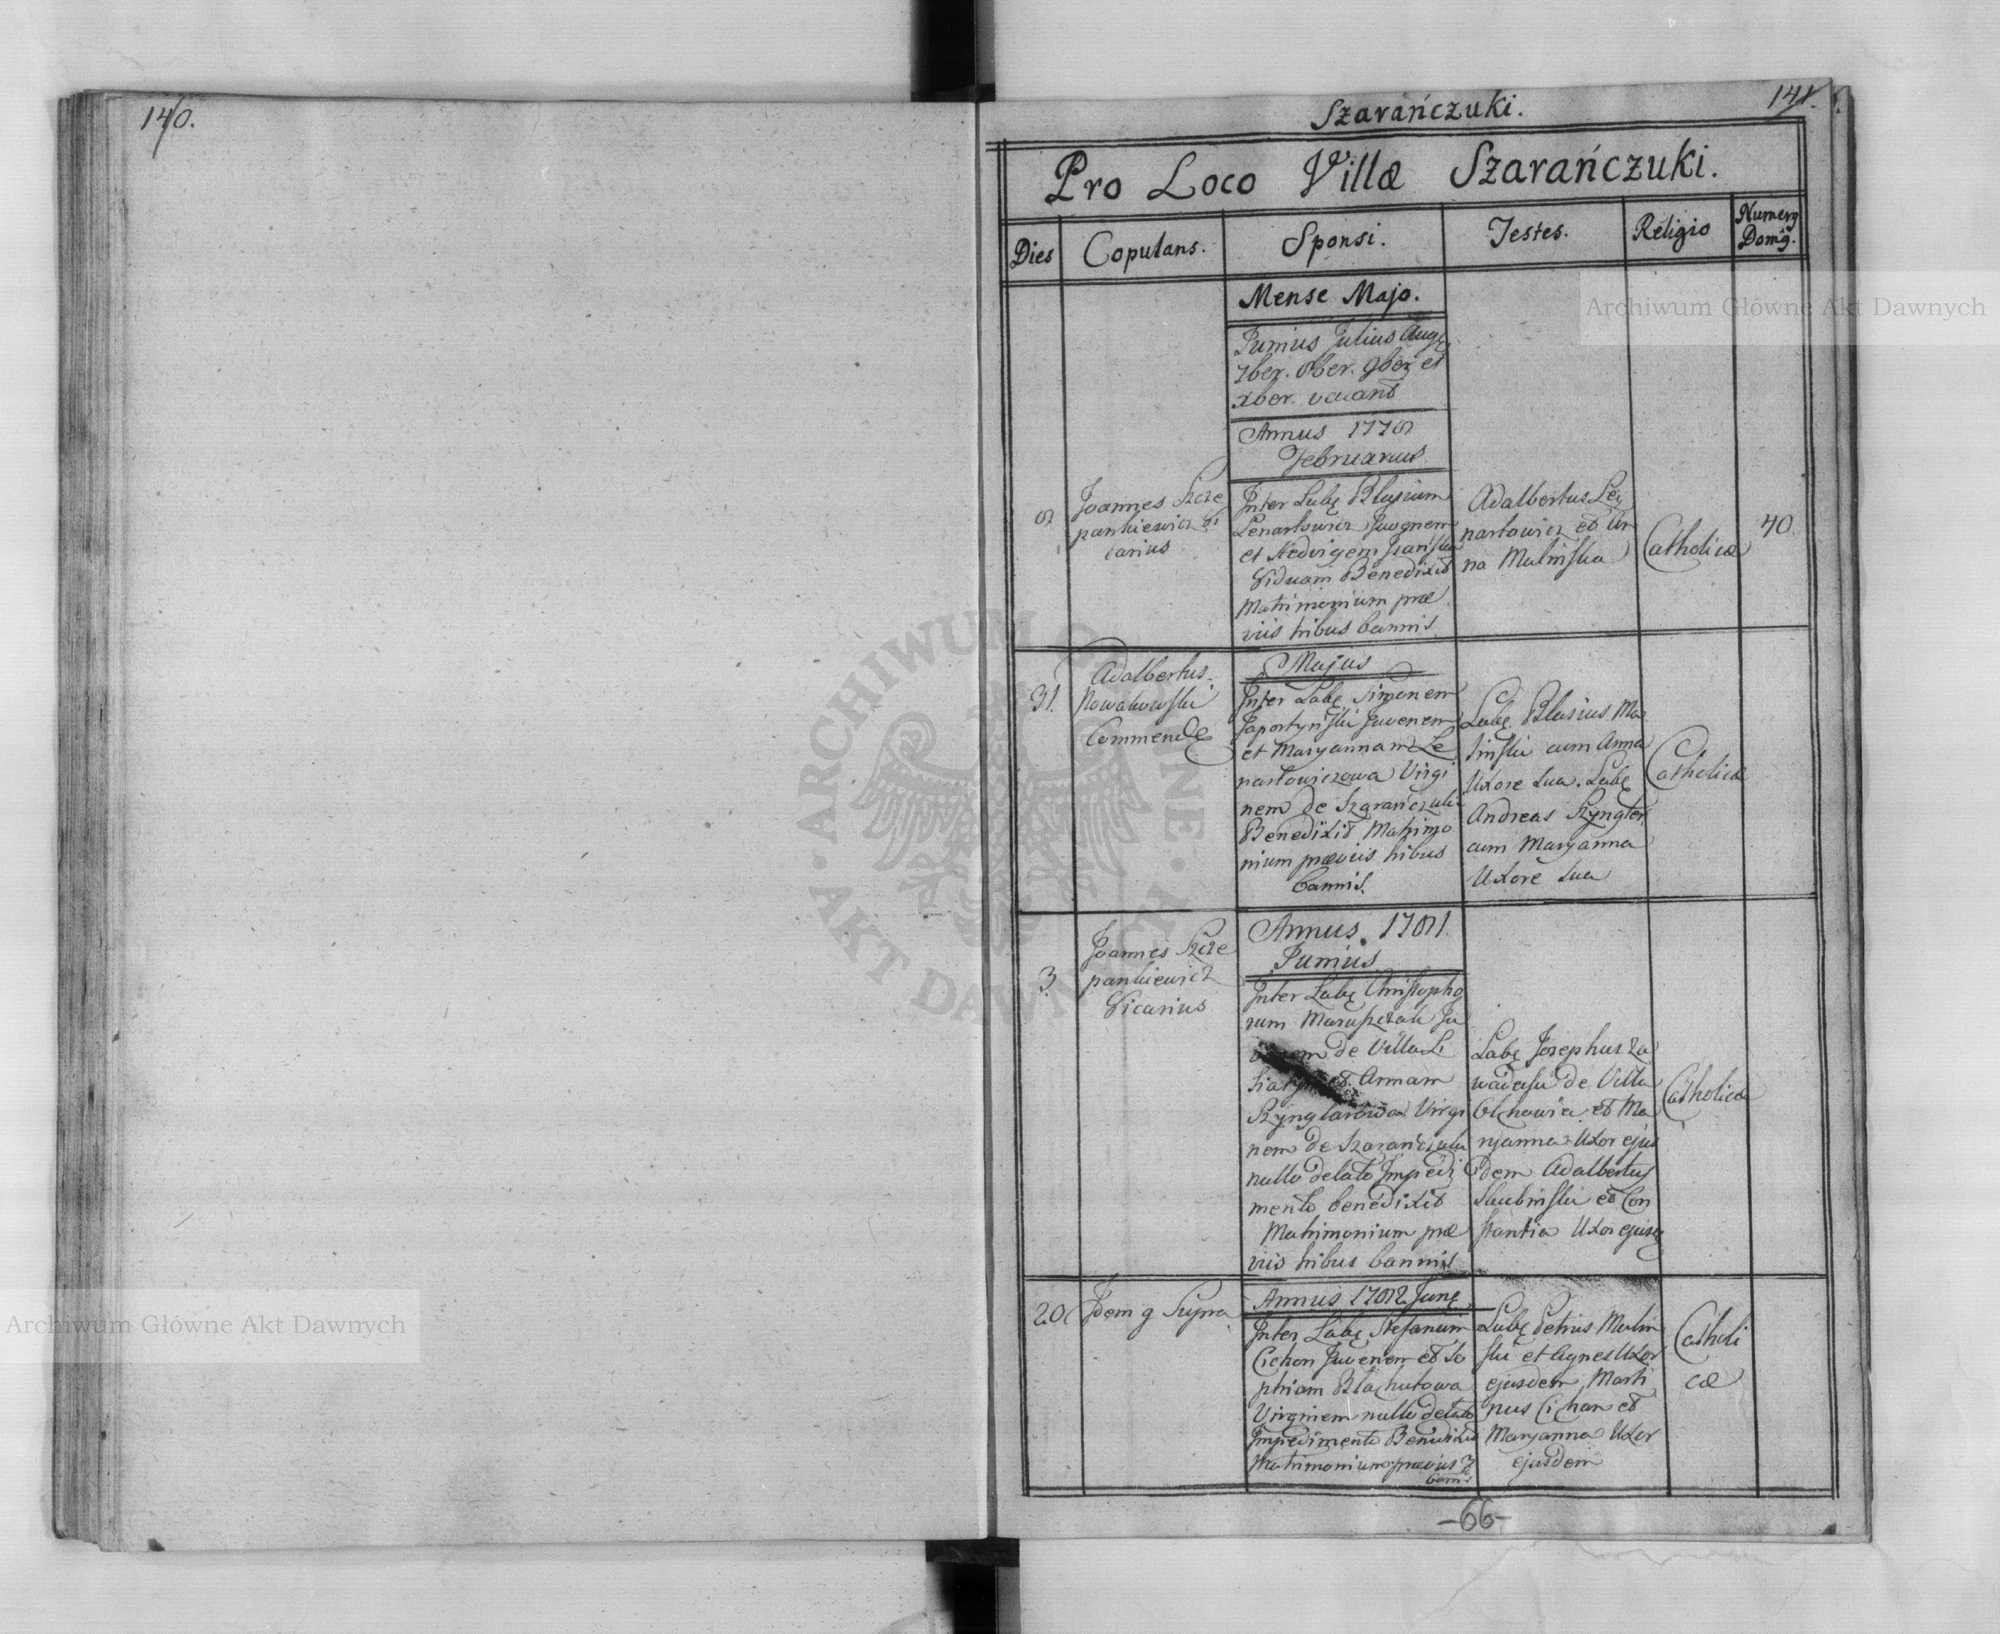 140.
141.
Szarańczuki.
Pro Loco Villæ Szarańczuki.
Dies
Copulans.
Sponsi.
Testes.
Religio
Numerg
Domg.
Mense Majo.
Junius Julius Augę
7ber. 8ber. 9ber et
Xber. vacant
Annus
Februarius
Joannes Szcze
pankiewicz Vi
carius
Inter Labę Blasium
Lenartowicz Juvenem
et Hedvigem
Viduam Benedixit
Matrimonium præ
viis tribus bannis
Adalbertus Le
nartowicz et An
na Malinska
Catholicæ
40.
31.
Adalbertus
Nowakowski
Commende
Majus
Inter Labę Simonem
Juvenem
et Maryannam Le
nartowiczowa Virgi
nem de Szarańczuki
Benedixit Matrimo
nium præviis tribus
bannis.
Labę Blasius Ma
linski cum Anna
Uxore sua. Labę
Andreas Szyngler
cum Maryanna
Uxore sua
Catholicæ
3
Joannes Szcze
pankiewicz
Vicarius
Annus 1781.
Junius
Inter Labę Christopho
rum Maruszczak Ju
venem de Villa Li
et Annam
Szynglarowa Virgi
nem de Szarańczuki
nullo delato Impedi
mento benedixit
Matrimonium præ
viis tribus bannis
Labę Josephus Za
wadzki de Villa
Olchowia et Ma
ryanna Uxor ejus
dem Adalbertus
Skubinski et Con
stantia Uxor ejusq
Catholicæ
20
Idem q Supra
Annus 1782 Junę
Inter Labę Stefanum
Cichon Juvenem et So
phiam Blachutowa
Virginem nullo delato
Impedimento Benedixit
Matrimonium prævius 3
bann
Labę Petrus Malin
ski et Agnes Uxor
ejusdem, Marti
nus Cichon et
Maryanna Uxor
ejusdem
Catholi
cæ
-66-
Archiwum Główne Akt Dawnych
Archiwum Główne Akt Dawnych
ARCHIWUM GŁÓWNE · AKT DAWNYCH ·